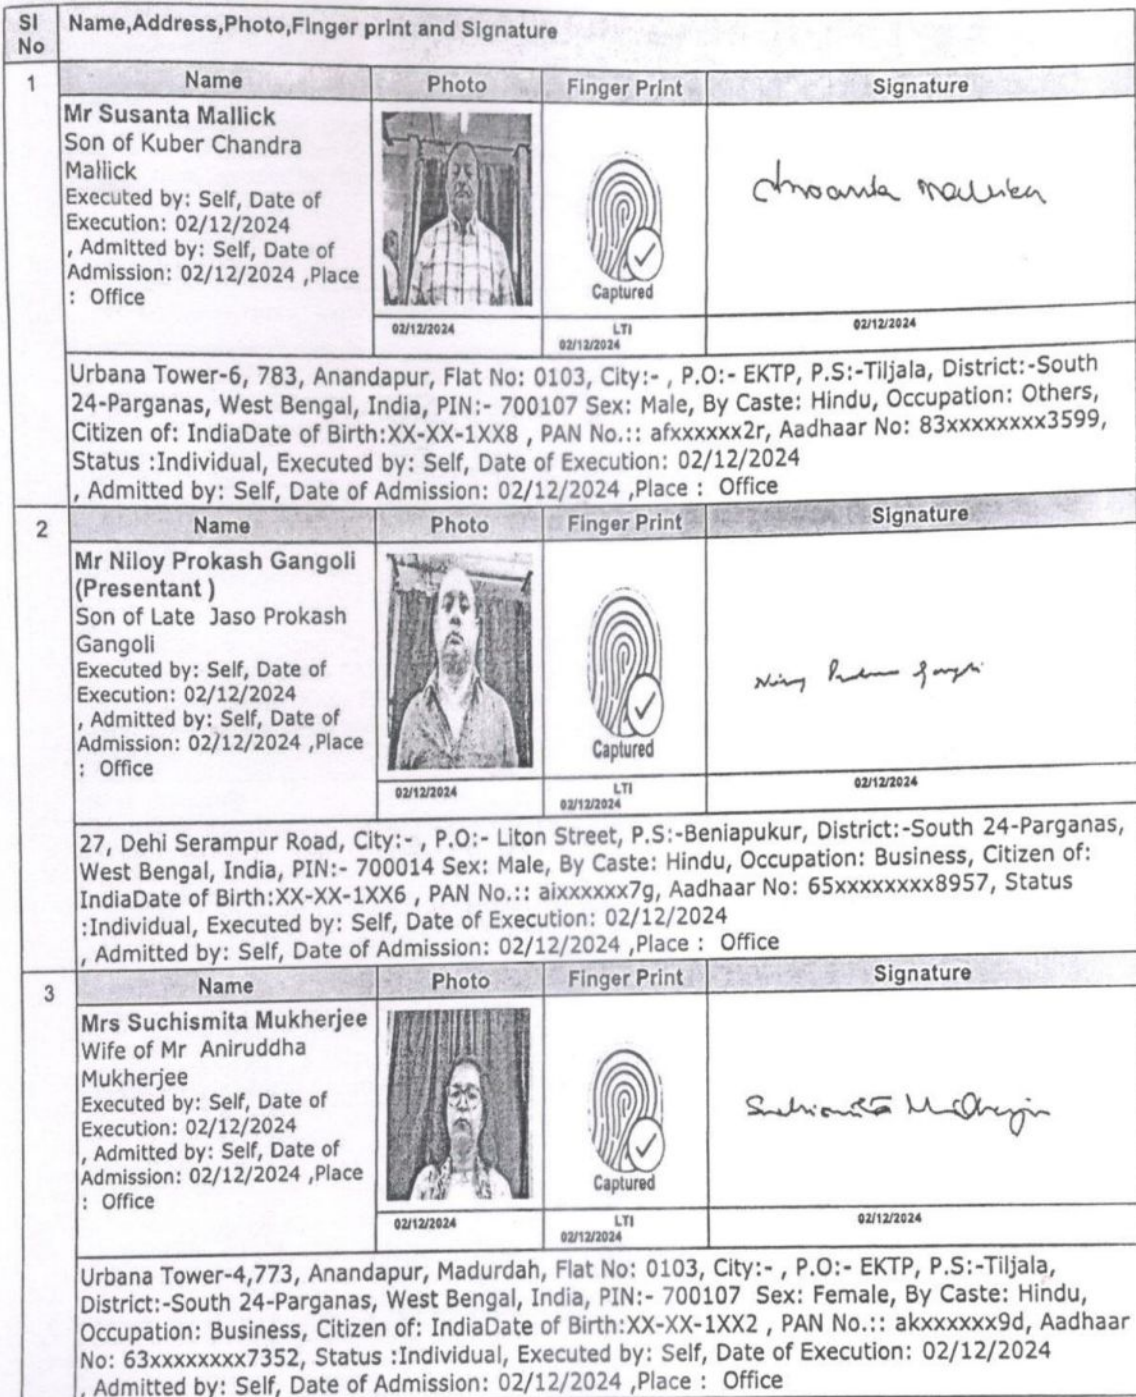 Sl No Name,Address,Photo,Finger print and Signature
1 Name Photo Finger Print Signature
Mr Susanta Mallick
Son of Kuber Chandra
Mallick
Executed by: Self, Date of
Execution: 02/12/2024
, Admitted by: Self, Date of
Admission: 02/12/2024 ,Place
: Office
Captured
02/12/2024 LTI 02/12/2024 02/12/2024
Urbana Tower-6, 783, Anandapur, Flat No: 0103, City:- , P.O:- EKTP, P.S:-Tiljala, District:-South
24-Parganas, West Bengal, India, PIN:- 700107 Sex: Male, By Caste: Hindu, Occupation: Others,
Citizen of: IndiaDate of Birth:XX-XX-1XX8 , PAN No.:: afxxxxxx2r, Aadhaar No: 83xxxxxxxx3599,
Status :Individual, Executed by: Self, Date of Execution: 02/12/2024
, Admitted by: Self, Date of Admission: 02/12/2024 ,Place : Office
2 Name Photo Finger Print Signature
Mr Niloy Prokash Gangoli
(Presentant )
Son of Late Jaso Prokash
Gangoli
Executed by: Self, Date of
Execution: 02/12/2024
, Admitted by: Self, Date of
Admission: 02/12/2024 ,Place
: Office
Captured
02/12/2024 LTI 02/12/2024 02/12/2024
27, Dehi Serampur Road, City:- , P.O:- Liton Street, P.S:-Beniapukur, District:-South 24-Parganas,
West Bengal, India, PIN:- 700014 Sex: Male, By Caste: Hindu, Occupation: Business, Citizen of:
IndiaDate of Birth:XX-XX-1XX6 , PAN No.:: aixxxxxx7g, Aadhaar No: 65xxxxxxxx8957, Status
:Individual, Executed by: Self, Date of Execution: 02/12/2024
, Admitted by: Self, Date of Admission: 02/12/2024 ,Place : Office
3 Name Photo Finger Print Signature
Mrs Suchismita Mukherjee
Wife of Mr Aniruddha
Mukherjee
Executed by: Self, Date of
Execution: 02/12/2024
, Admitted by: Self, Date of
Admission: 02/12/2024 ,Place
: Office
Captured
02/12/2024 LTI 02/12/2024 02/12/2024
Urbana Tower-4,773, Anandapur, Madurdah, Flat No: 0103, City:- , P.O:- EKTP, P.S:-Tiljala,
District:-South 24-Parganas, West Bengal, India, PIN:- 700107 Sex: Female, By Caste: Hindu,
Occupation: Business, Citizen of: IndiaDate of Birth:XX-XX-1XX2 , PAN No.:: akxxxxxx9d, Aadhaar
No: 63xxxxxxxx7352, Status :Individual, Executed by: Self, Date of Execution: 02/12/2024
, Admitted by: Self, Date of Admission: 02/12/2024 ,Place : Office